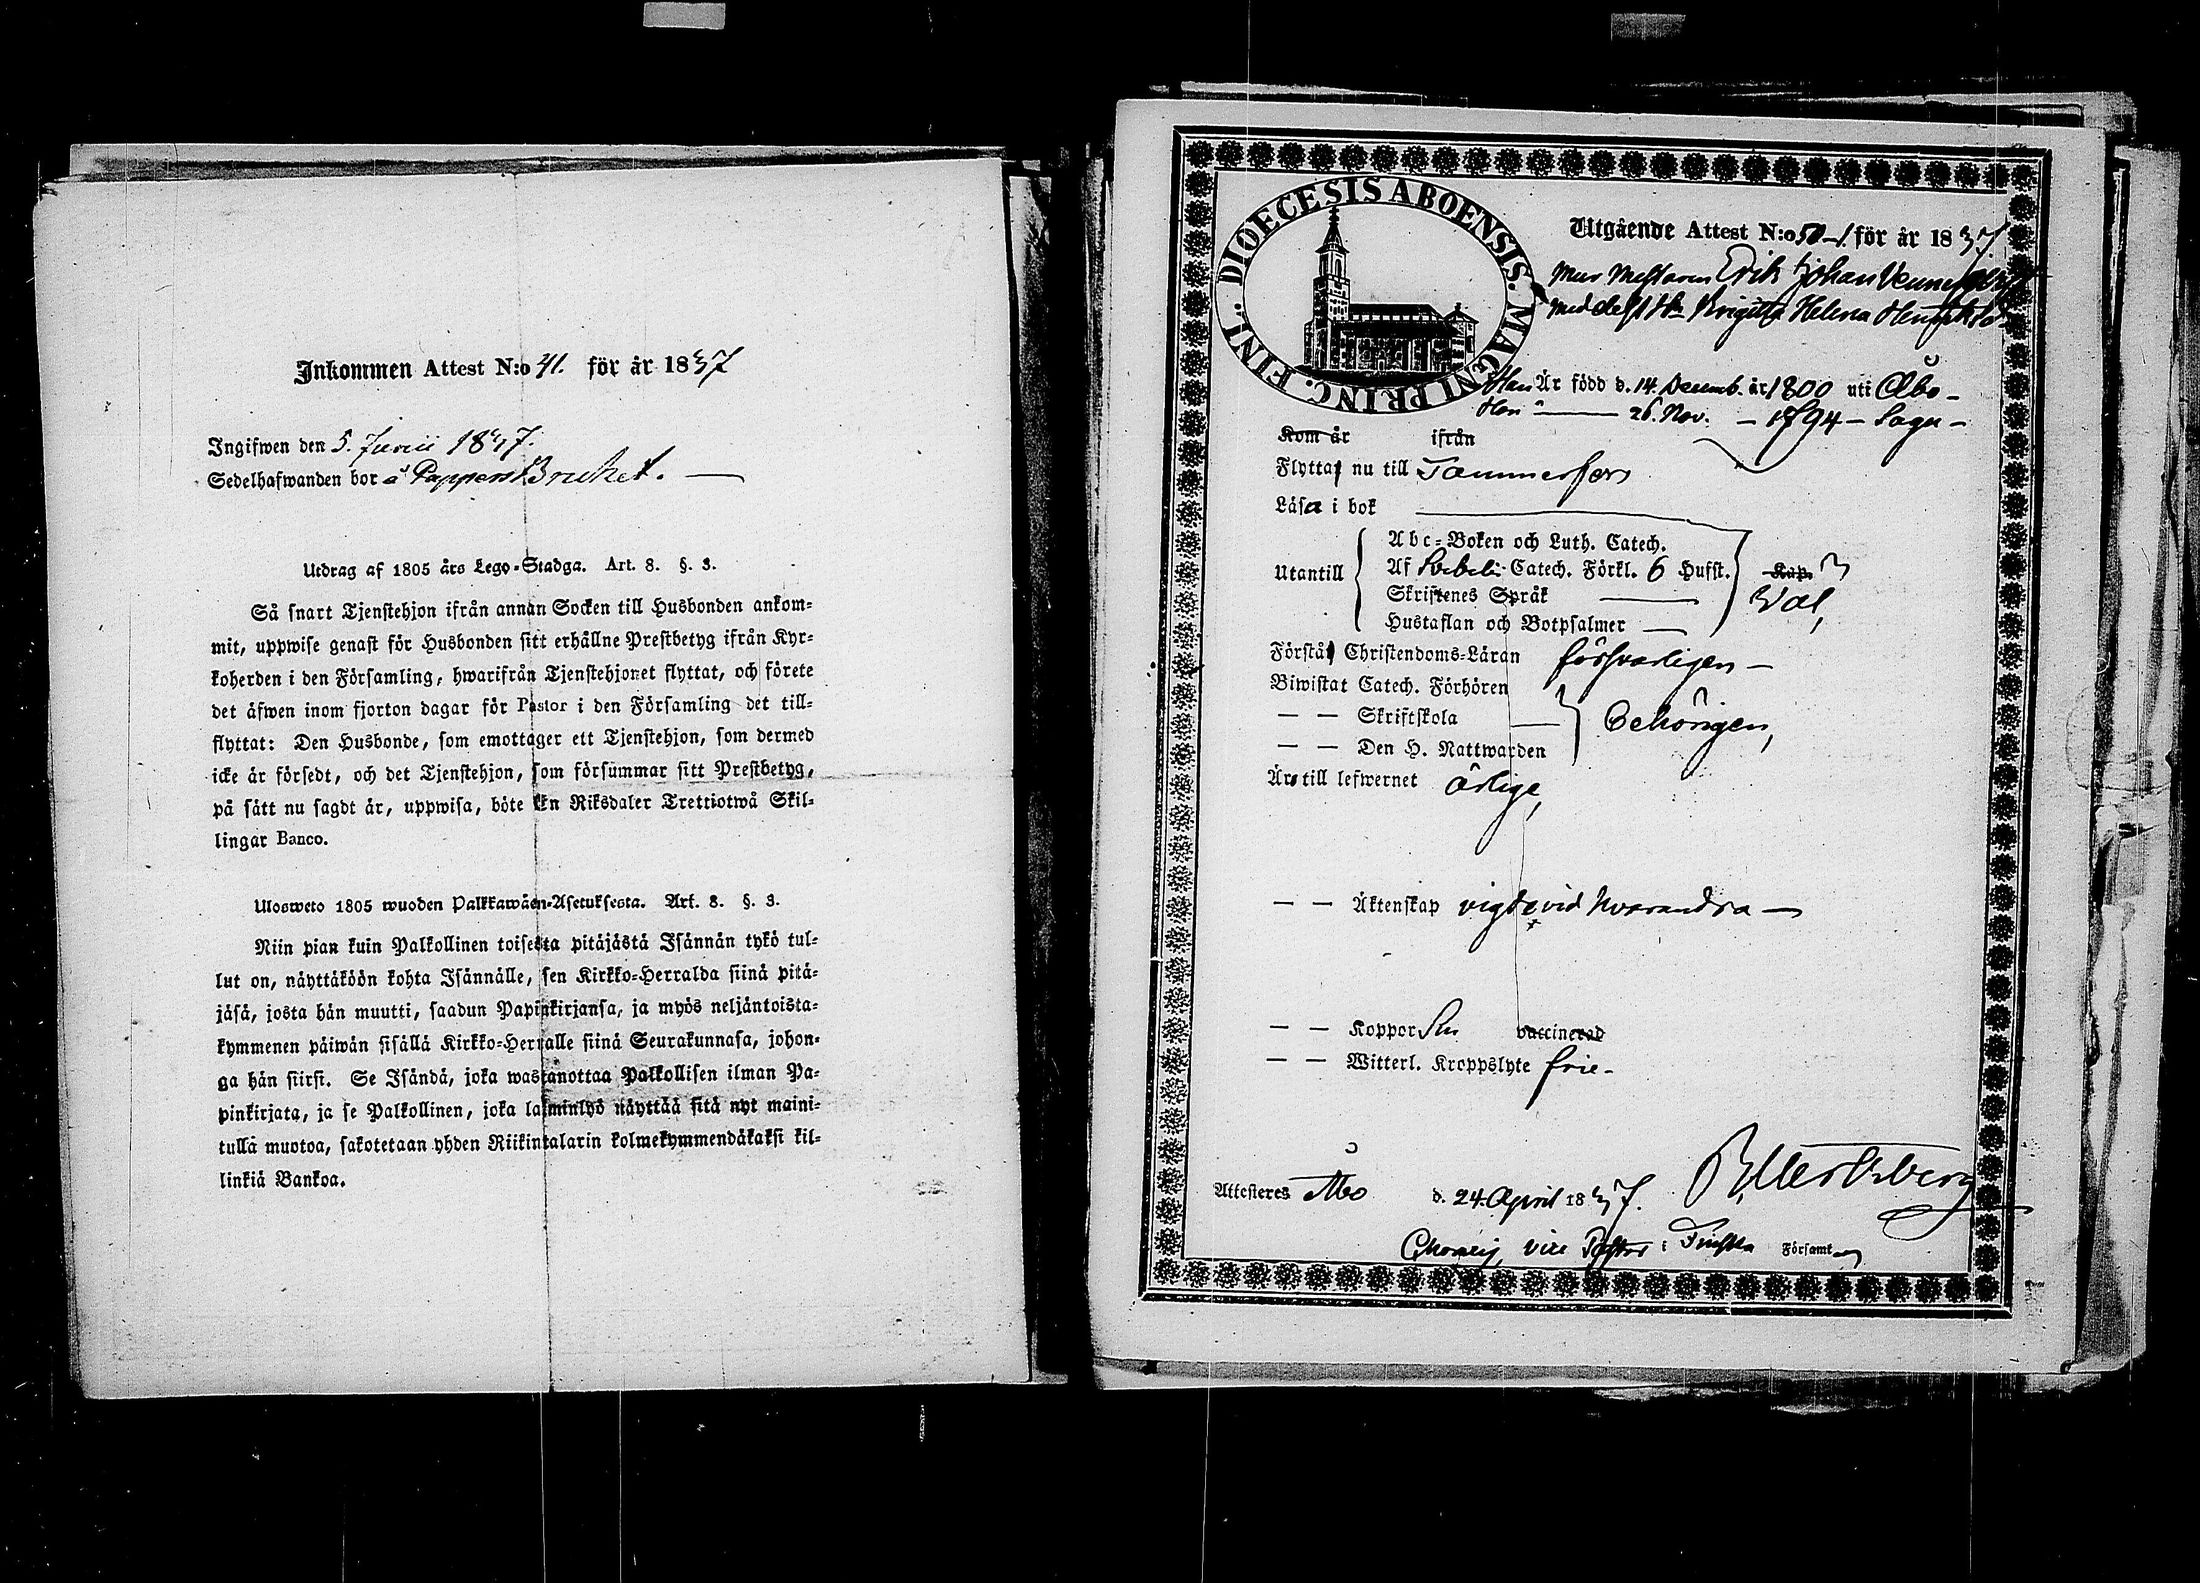 Inkommen Attest N:o 41. för år 1837
Ingifwen den 5. Junii 1837.
Sedelhafwanden bor å PappersBruket.
Utdrag af 1805 års Lego-Stadga. Art. 8. §. 3.
Så snart Tjenstehjon ifrån annan Socken till Husbonden ankom-
mit, uppwise genast för Husbonden sitt erhållne Prestbetyg ifrån Kyr-
koherden i den Församling, hwarifrån Tjenstehjonet flyttat, och förete
det äfwen inom fjorton dagar för Pastor i den Församling det till-
flyttat: Den Husbonde, som emottager ett Tjenstehjon, som dermed
icke är försedt, och det Tjenstehjon, som försummar sitt Prestbetyg,
på sätt nu sagdt är, uppwisa, böte En Riksdaler Trettiotwå Skil-
lingar Banco.
Ulosweto 1805 wuoden Palkkawäen-Asetuksesta. Art. 8. §. 3.
Niin pian kuin Palkollinen toisesta pitäjästä Isännän tykö tul-
lut on, näyttäköön kohta Isännälle, sen Kirkko-Herralda siinä pitä-
jäsä, josta hän muutti, saadun Papinkirjansa, ja myös neljäntoista-
kymmenen päiwän sisällä Kirkko-Herralle siinä Seurakunnasa, johon-
ga hän siirsi. Se Isändä, joka wastanottaa Palkollisen ilman Pa-
pinkirjata, ja se Palkollinen, joka laiminlyö näyttää sitä nyt maini-
tulla muotoa, sakotetaan yhden Riikintalarin kolmekymmendäkaksi kil-
linkiä Bankoa.
DIOECESIS ABOENSIS. MAGNI PRINC. FINL.
Utgående Attest N:o 50-1. för år 1837.
Mur Mästaren Erik Johan
med dess H:u Brigitta Helena
Han Är född d. 14. Decemb. år 1800 uti Åbo -
Hon " — 26. Nov. — 1794 — Sagu -
Kom år ifrån
Flytta nu till Tammerfors
Läsa i bok
Utantill
Abc-Boken och Luth. Catech.
Af Svebelii Catech. Förkl. 6 Hufst.
Skriftenes Språk
Hustaflan och Botpsalmer
Kap.
Väl,
Förstå Christendoms-Läran försvarligen -
Biwistat Catech. Förhören
— — Skriftskola
— — Den H. Nattwarden
Behörigen,
Äro till lefwernet ärlige,
— — Äktenskap vigde vid hvarandra —
— — Koppor vaccinerad
— — Witterl. Kroppslyte frie -
Attesteres Åbo d. 24. April 1837.
vice Pastor i Finska Församl.